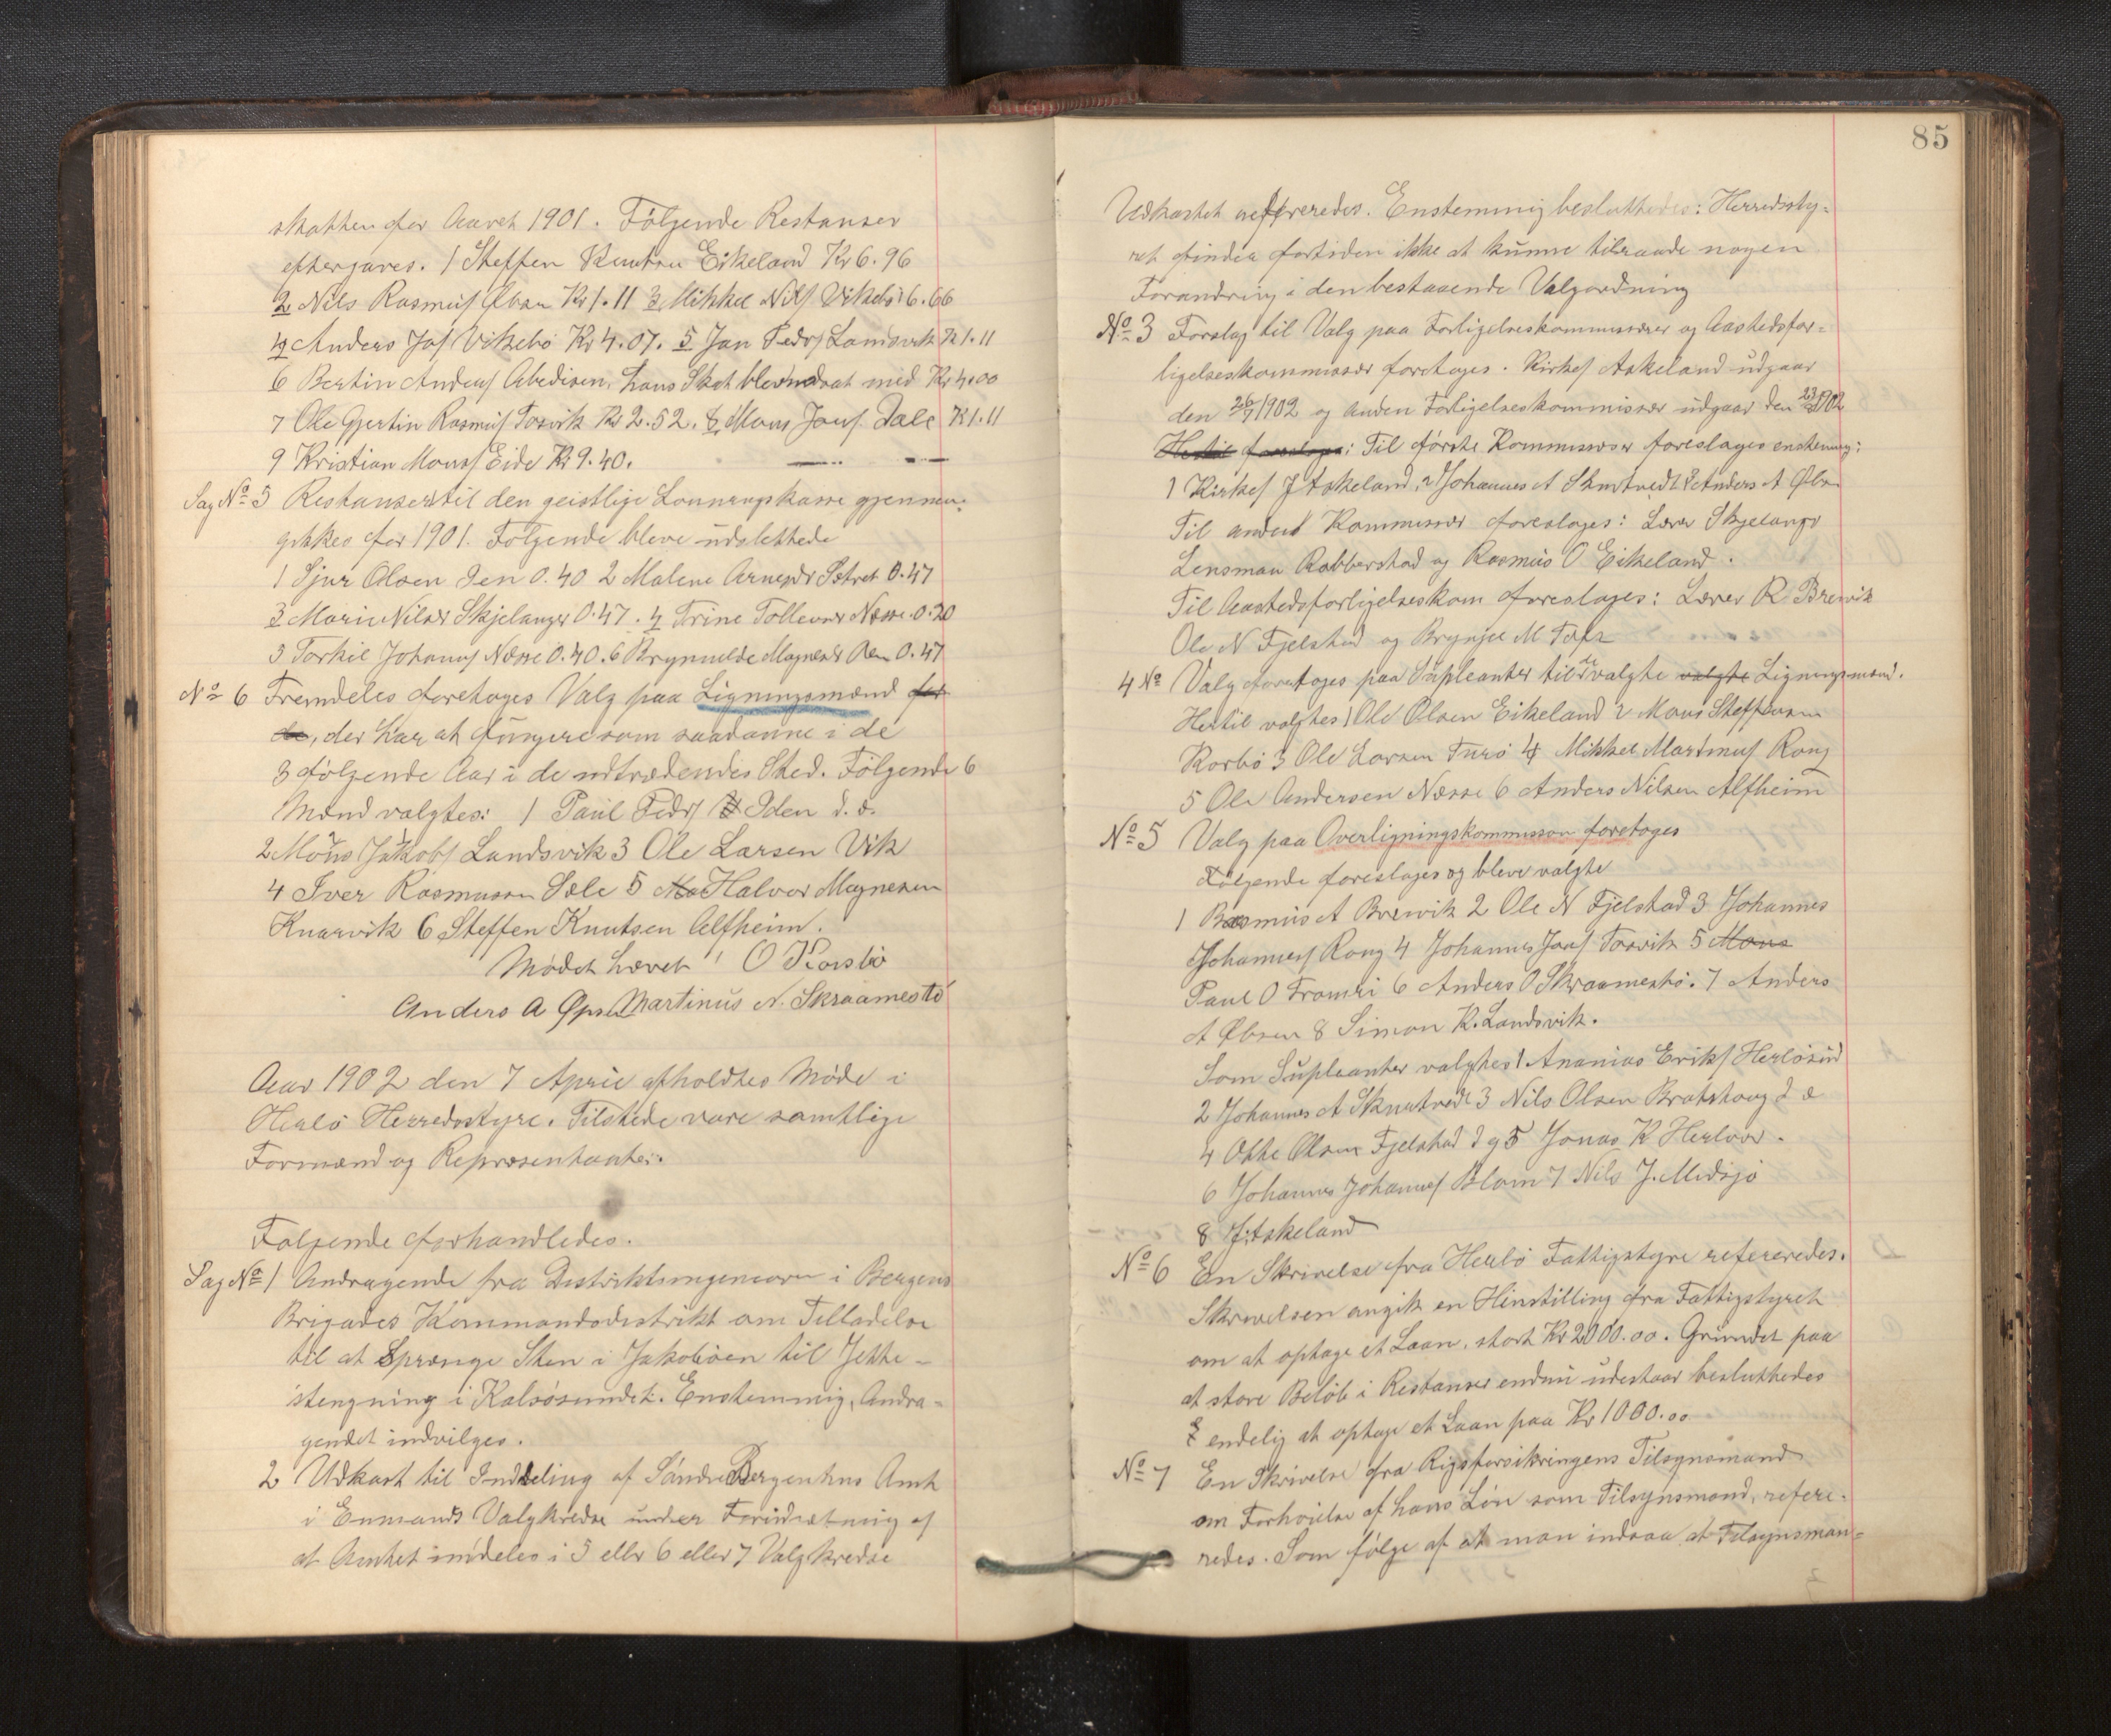 skatten for Aaret 1901. Følgende Restanser
eftergaves. 1 Steffen Knutsen Eikeland Kr 6.96
2 Nils Rasmus/ Øbsen Kr 1.11 3 Mikkel Nils/ Vikebö 6.66
4 Anders Jos/ Vikebö Kr 4.07. 5 Jan Peders/ Landsvik K 1.11
6 Bertin Anders/ hans Skat blev med Kr 4.00
7 Ole Gjertin Rasmus/ Tosvik Kr 2.52. 8 Mons Jons/ Dale K 1.11
9 Kristian Mons/ Eide Kr 9.40.
Sag No 5 Restanser til den geistlige Lönningskasse gjennem-
gikkes for 1901. Følgende bleve udslettede
1 Sjur Olsen Iden 0.40 2 Malene Arnesdr Sætret 0.47
3 Marie Nilsdr Skjelanger 0.47. 4 Trine Tollevsdr Næsse 0.20
5 Torkil Johans/ Næsse 0.40. 6 Brynnilde Magnesdr 0.47
No 6 Fremdeles foretages Valg paa Ligningsmænd for
de, der har at fungere som saadanne i de
3 følgende Aar i de udtrædendes Sted. Følgende 6
Mænd valgtes: 1 Paul Peders/ Iden d. æ.
2 Mons Jakobs/ Landsvik 3 Ole Larsen Vik
4 Iver Rasmussen Sæle 5 Ma Halvor Magnesen
Knarvik 6 Steffen Knutsen Alfheim.
Mödet hævet O Rossbö
Anders A Øpsen Martinus N. Skraamestö
Aar 1902 den 7 April afholdtes Möde i
Herlö Herredsstyre. Tilstede vare samtlige
Formænd og Repræsentanter.
Følgende forhandledes.
Sag No 1 Andragende fra Distriktsingeniøren i Bergens
Brigades Kommandodistrikt om Tilladelse
til at Sprænge Sten i Jakoböen til Jette-
stengning i Kalsösundet. Enstemmig, Andra-
gendet indvilges.
2 Udkast til Inddeling af Söndre Bergenhus Amt
i Enmands Valgkredse under Forudsætning af
at Amtet inddeles i 5 eller 6 eller 7 Valgkredse
85
Udkastet refereredes. Enstemmig besluttedes: Herredssty-
ret finder fortiden ikke at kunne tilraade nogen
Forandring i den bestaaende Valgordning
No 3 Forslag til Valg paa Forligelseskommissærer og Aastedsfor-
ligelseskommissær foretages. Kirkes/ Askeland udgaar
den 26/7 1902 og anden Forligelseskommissær udgaar den 23/ 1902
Hertil foreslages: Til förste Kommissær foreslages enstemmig:
1 Kirkes/ J Askeland, 2 Johannes A Skurtvedt 3 Anders A Øbsen
Til anden Kommissær foreslages: Lærer Skjelanger
Lensman Rabberstad og Rasmus O Eikeland.
Til Aastedsforligelseskom foreslages: Lærer R Brevik
Ole N Fjelstad og Brynjel M Tofte
4 No Valg foretages paa Supleanter til de valgte valgte Ligningsmænd.
Hertil valgtes 1 Ole Olsen Eikeland 2 Mons Steffensen
Korbö 3 Ole Larsen Turö 4 Mikkel Martinus/ Rong
5 Ole Andersen Næsse 6 Anders Nilsen Alfheim
No 5 Valg paa Overligningskommission foretages
Følgende foreslages og bleve valgte
1 Rasmus A Brevik 2 Ole N Fjelstad 3 Johannes
Johannes/ Rong 4 Johannes Jons/ Tosvik 5 Mons
Paul O Fromrei 6 Anders O Skraamestö. 7 Anders
A Øbsen 8 Simon K. Landsvik.
Som Supleanter valgtes 1 Ananias Eriks/ Herlösund
2 Johannes A Skurtvedt 3 Nils Olsen Bratshaug d æ
4 Otte Olsen Fjelstad d y 5 Jonas K Herlvær.
6 Johannes Johannes/ Blom 7 Nils J. Midsjö
8 J. Askeland
No 6 En Skrivelse fra Herlö Fattigstyre refereredes.
Skrivelsen angik en Hinstilling fra Fattigstyret
om at optage et Laan, stort Kr 2000.00. Grundet paa
at store Belöb i Restanser endnu udestaar besluttedes
endelig at optage et Laan paa Kr 1000.00
No 7 En Skrivelse fra Rigsforsikringens Tilsynsmand
om Forhöielse af hans Lön som Tilsynsmand, refere-
redes. Som fölge af at man indsaa at Tilsynsman-